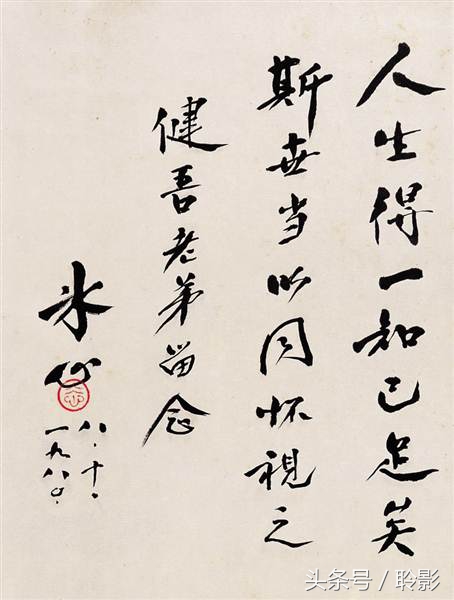 人生得一知己足矣
斯世当以同怀视之
健吾老弟留念
冰心
八、十、
一九八〇、
头条号/聆影